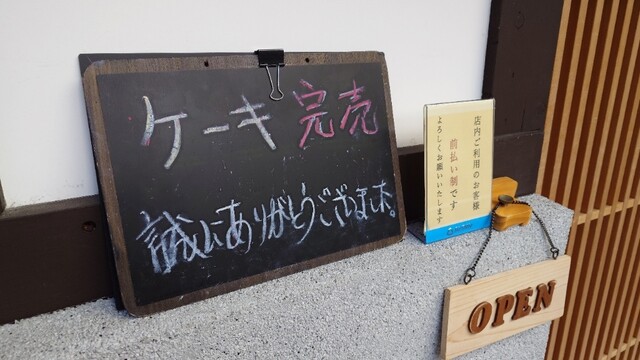 ケーキ 完売
誠にありがとうございました。
店内ご利用のお客様
前払い制です
よろしくお願いいたします
OPEN